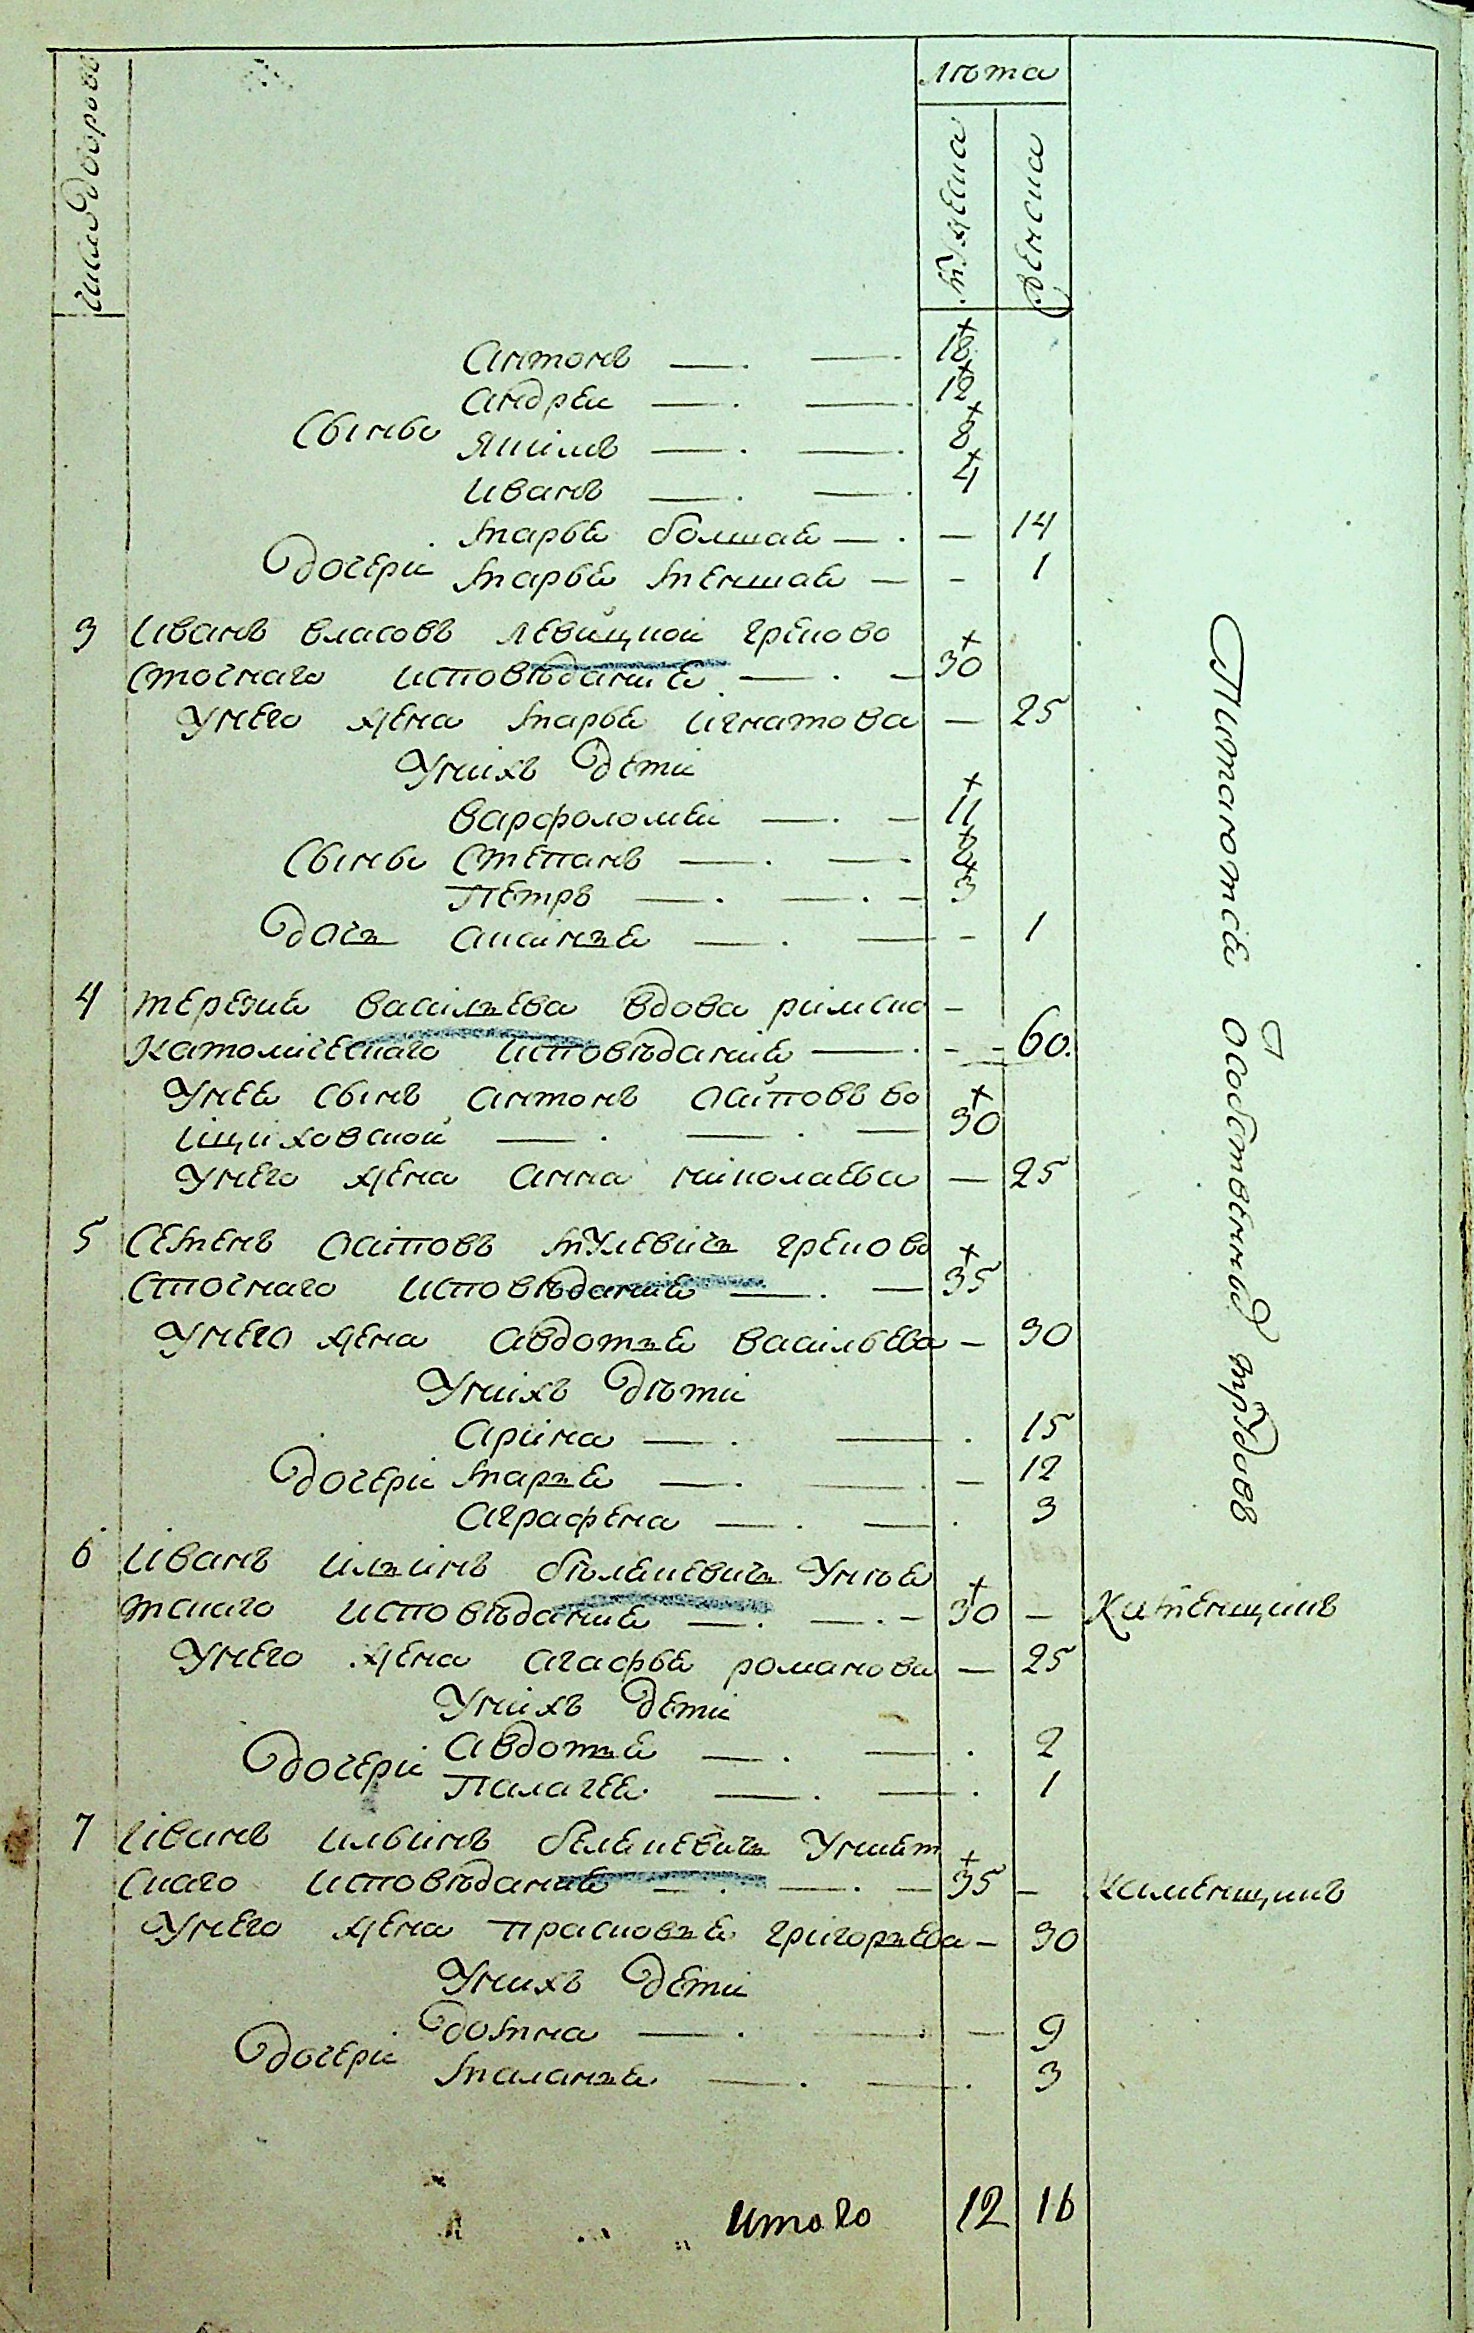 число дворовъ
лѣта
мужеска
женска
Антонъ — . — . 18
Андреи — . — . 12
Сыны
Якимъ — . — . 8
Иванъ — . — . 4
Марья болшая — . — 14
Дочери Марья меншая — - 1
3 Иванъ власовъ левицкой греково
сточнаго исповѣдания — . — 30
У него жена марья игнатова — 25
У нихъ дети
варфоломеи — . — 11
Сыны Степанъ — . — .
Петръ — . — . — 3
Дочь аксинья — . — - 1
4 терезия васильева вдова римско -
католическаго исповѣдания — . - - 60.
У нее сынъ антонъ осиповъ во
ицыховской — . — . — 30
У него жена анна николаева — 25
5 Семенъ осиповъ мулевичь греково
сточнаго исповѣдания — . — 35
У него жена авдотья васильева — 30
У нихъ дѣти
Арина — . — . 15
Дочери марья — . — . — 12
Аграфена — . — . 3
6 Иванъ ильинъ бѣлякевичь унѣя
тскаго исповѣдания — . — . — 30 — Каменщикъ
У него жена агафья романова — 25
У нихъ дети
Дочери Авдотья — . — . 2
Палагея — . — . 1
7 Иванъ ильинъ белякевичь уният
скаго исповѣдания — . — . — 35 — каменщикъ
У него жена прасковья григорьева — 30
У нихъ дети
Домна — . — . — 9
Дочери
маланья — . — . 3
итого 12 16
Питаются отъ собственныхъ трудовъ